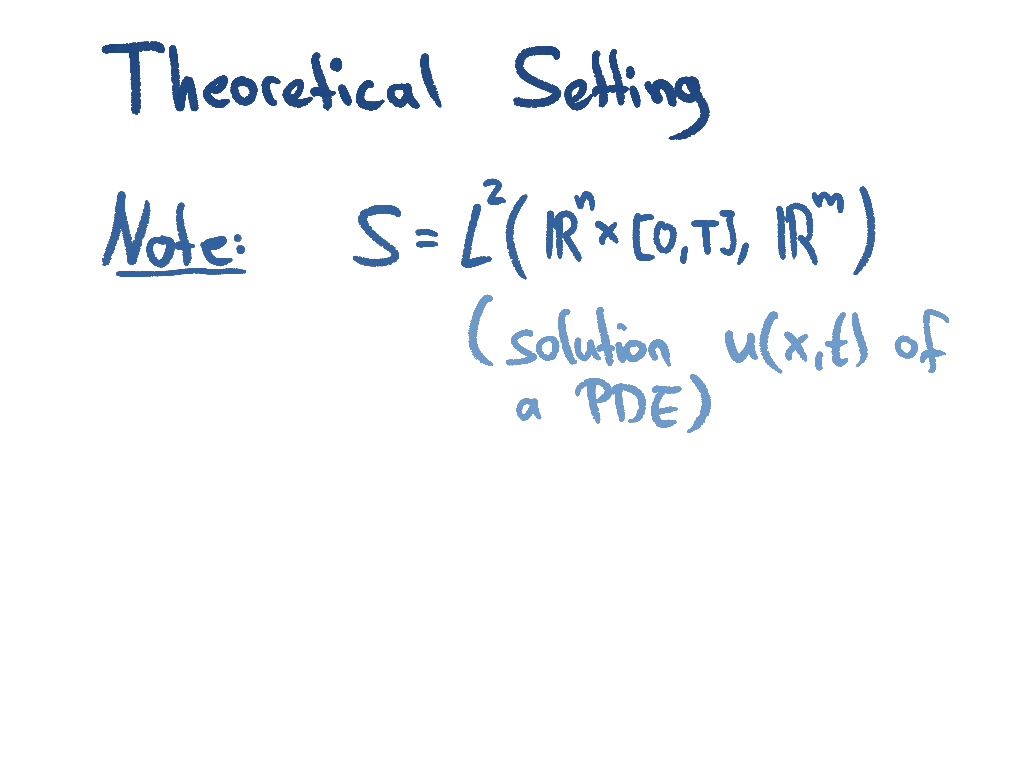 Theoretical Setting
Note: S = L²(ℝⁿ × [0,T], ℝᵐ)
(solution u(x,t) of
a PDE)